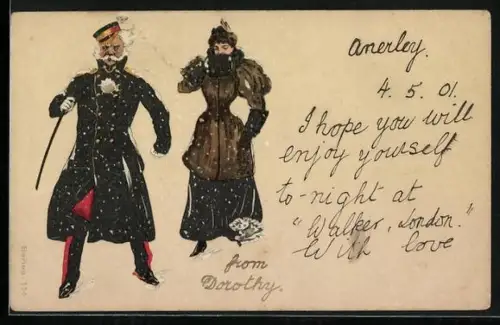 Anerley.
4. 5. 01.
I hope you will
enjoy yourself
to-night at
"Walker, London."
With love
from
Dorothy.